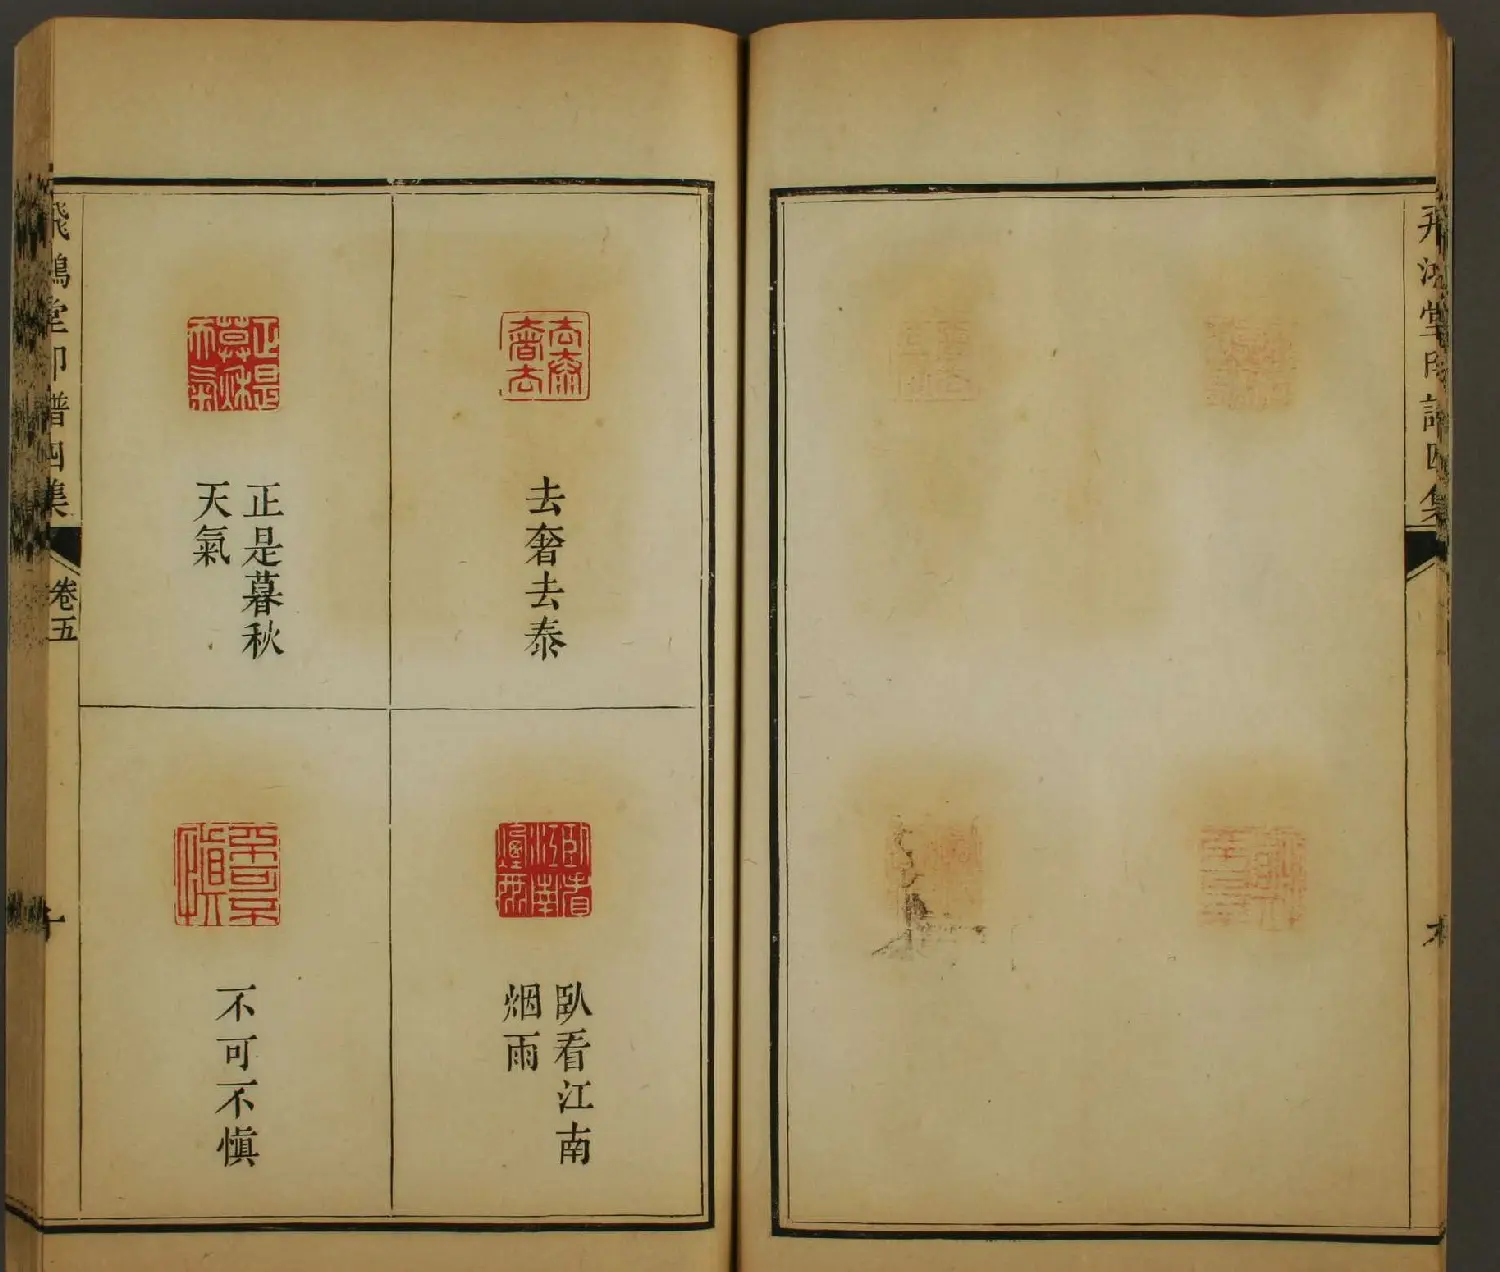 飛鴻堂印譜四集
去奢去泰
正是暮秋
天氣
臥看江南
烟雨
不可不愼
飛鴻堂印譜四集
卷五
十